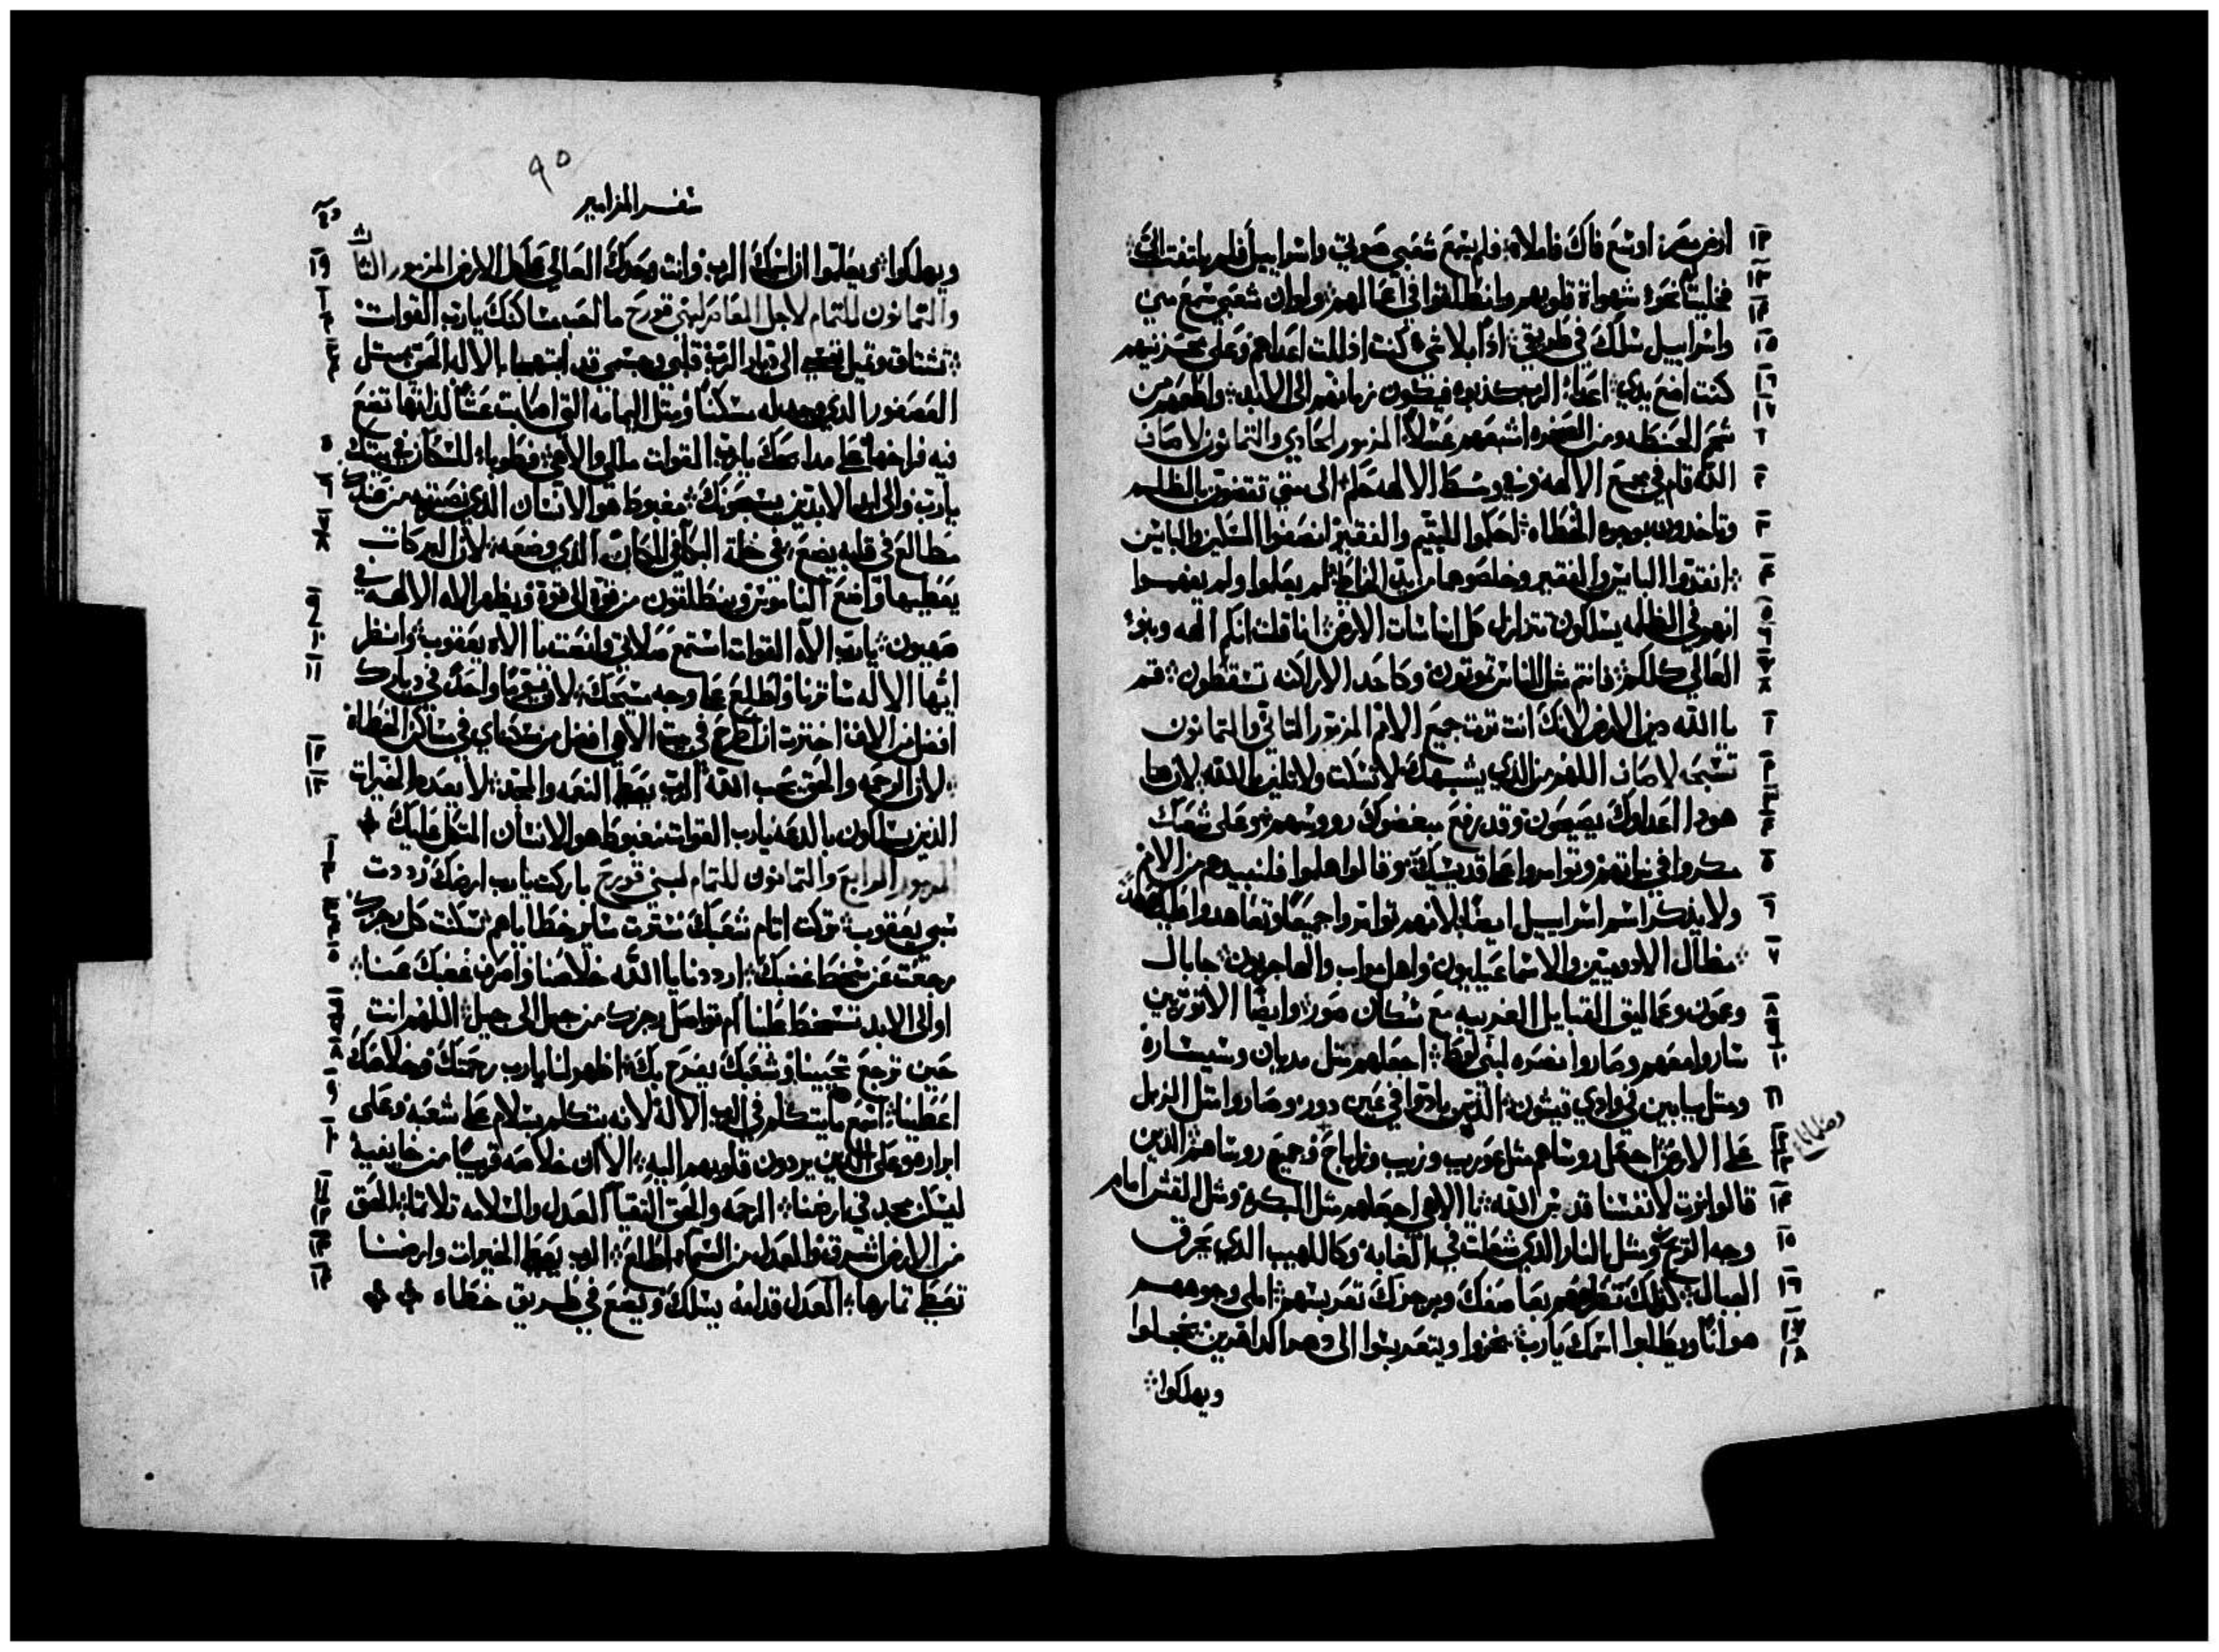 ارض مصر اوسع فاك فاملاه فلم يسمع شعبي صوتي واسراييل فلم يلتفت اليّ
فخليتهم نحو شهواة قلوبهم وانطلقوا في اعمالهم ولو ان شعبي سمع مني
واسراييل سلك في طريقي اذًا بلا شي كنت اذللت اعداهم وعلى محزنيهم
كنت اضع يدي اعداء الرب كذبوه فيكون زمانهم الى الابد واطعمهم من
شحم الحنطه ومن الصخره اشبعهم عسلاً المزمور الحادي والتمانون لاصاف
الله قام في مجمع الالهه وفي وسط الالهه حكم الى متى تقضون بالظلم
وتاخدون بوجوه الخطاه احكموا لليتيم والفقير انصفوا المسكين والبايس
انقدوا البايس والفقير وخلصوهما من ايدي الخاطي لم يعلموا ولم يفهموا
انهم في الظلمه يسلكون تتزلزل كل اساسات الارض انا قلت انكم الهه وبنو
العالي كلكم فانتم مثل الناس تموتون وكاحد الاراكنه تسقطون قم
يا الله دين الارض لانك انت ترت جميع الامم المزمور التاني والتمانون
تسبحه لاصاف اللهم من الدي يشبهك لا تسكت ولا تلين يا الله لان ها
هودا اعداوك يصيحون وقد رفع مبغضوك رووسهم وعلى شعبك
مكروا في نياتهم وتوامروا على قديسيك وقالوا هلموا فلنبيدهم من الامم
ولا يذكر اسم اسراييل ايضًا لانهم توامروا جميعًا وتعاهدوا عليك عهدًا
مظال الادوميين والاسماعيليون واهل مواب والهاجريون جابال
وعمون وعماليق القبايل الغريبه مع سكان صور وايضًا الاتوريين
ساروا معهم وصاروا نصره لبني لوط اجعلهم مثل مديان وسيسارة
ومتل يابين في وادي قيشون الذين بادوا في عين دور وصاروا متل الزبل
على الارض اجعل روساهم مثل عوريب وزيب وزاباح وجميع روساهم الذين
قالوا نرت لانفسنا قدس الله يا الاهي اجعلهم مثل البكره ومثل القش امام
وجه الريح ومثل النار الدي شعلت في الغابه وكاللهيب الذي يحرق
الجبال كذلك تطردهم بعاصفك وبرجزك تعربسهم املي وجوههم
هوانًا ويطلبوا اسمك يارب يخزوا ويتعربسوا الى دهر الداهرين يخجلوا
ويهلكوا
وصلمانا
١٢
١٣
١٤
١٥
١٦
١٧
٩٥
سفر المزامير
ويهلكوا ويعلموا ان اسمك الرب وانت وحدك العالي على كل الارض المزمور الثالث
والتمانون للتمام لاجل المعاصر لبني قورح ما احب مساكنك يا رب القوات
تشتاق وتميل نفسي الى ديار الرب قلبي وجسمي قد ابتهجا بالاله الحي متل
العصفور الدي وجد له مسكنًا ومتل اليمامه التي اصابت عشًا لذاتها تضع
فيه فراخها على مدابحك يا رب القوات ملكي والاهي فطوباء للسكان في بيتك
يا رب والى ابد الابدين يسبحونك مغبوط هو الانسان الدي نصرته من عندك
مطالع في قلبه يضع في خلة البكا في المكان الدي وضعه لان البركات
يعطيها واضع الناموس وينطلقون من قوة الى قوة ويظهر اله الالهه في
صهيون يا رب اله القوات استمع صلاتي وانصت يا اله يعقوب وانظر
ايها الاله ساترنا واطلع على وجه مسيحك لان يومًا واحدً في ديارك
افضل من الاف اخترت ان اطرح في بيت الاهي افضل من سكناي في مساكن الخطاه
لان الرحمه والحق يحب الله الرب يعطي النعمه والمجد لا يعدم الخيرات
الذين يسلكون بالدعه يا رب القوات مغبوط هو الانسان المتكل عليك
المزمور الرابع والتمانون للتمام لبني قورح باركت يا رب ارضك رددت
سبي يعقوب تركت اتام شعبك سترت ساير خطاياهم سكنت كل رجزك
رجعت عن سخط غضبك ارددنا يا الله خلاصنا واصرف غضبك عنا
اوالى الابد تسخط علينا ام تواصل رجزك من جيل الى جيل اللهم انت
حين ترجع تحيينا وشعبك يفرح بك اظهر لنا يا رب رحمتك وخلاصك
اعطينا اسمع ما يتكلم في الرب الاله لانه يتكلم بسلام على شعبه وعلى
ابراره وعلى الذين يردون قلوبهم اليه الا ان خلاصه قريبًا من خايفيه
ليسكن مجد في ارضنا الرحمه والحق التقيا العدل والسلامه تلاتما الحق
من الارض اشرق والعدل من السماء اطلع الرب يعطي الخيرات وارضنا
تعطي تمارها العدل قدامه يسلك ويضع في طريق خطاه